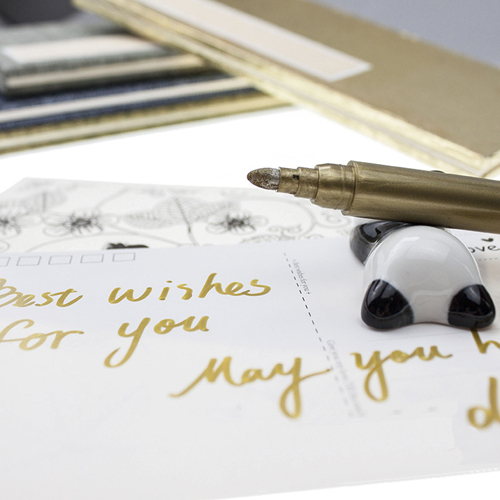 Best wishes
for you
May you h
d
ove